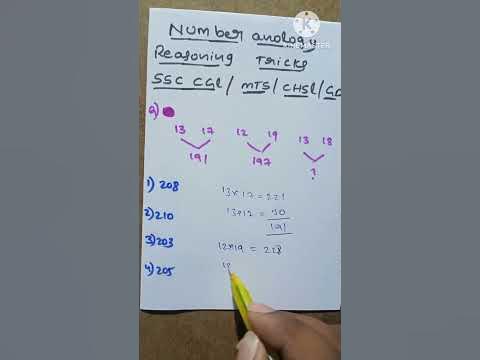 Number anology
Reasoning Tricks
SSC CGL / MTS / CHSL / GD
KINEMASTER
13 17 12 19 13 18
191 197 ?
1) 208
2) 210
3) 203
4) 205
13×17 = 221
13+17 = 30
191
12×19 = 228
12